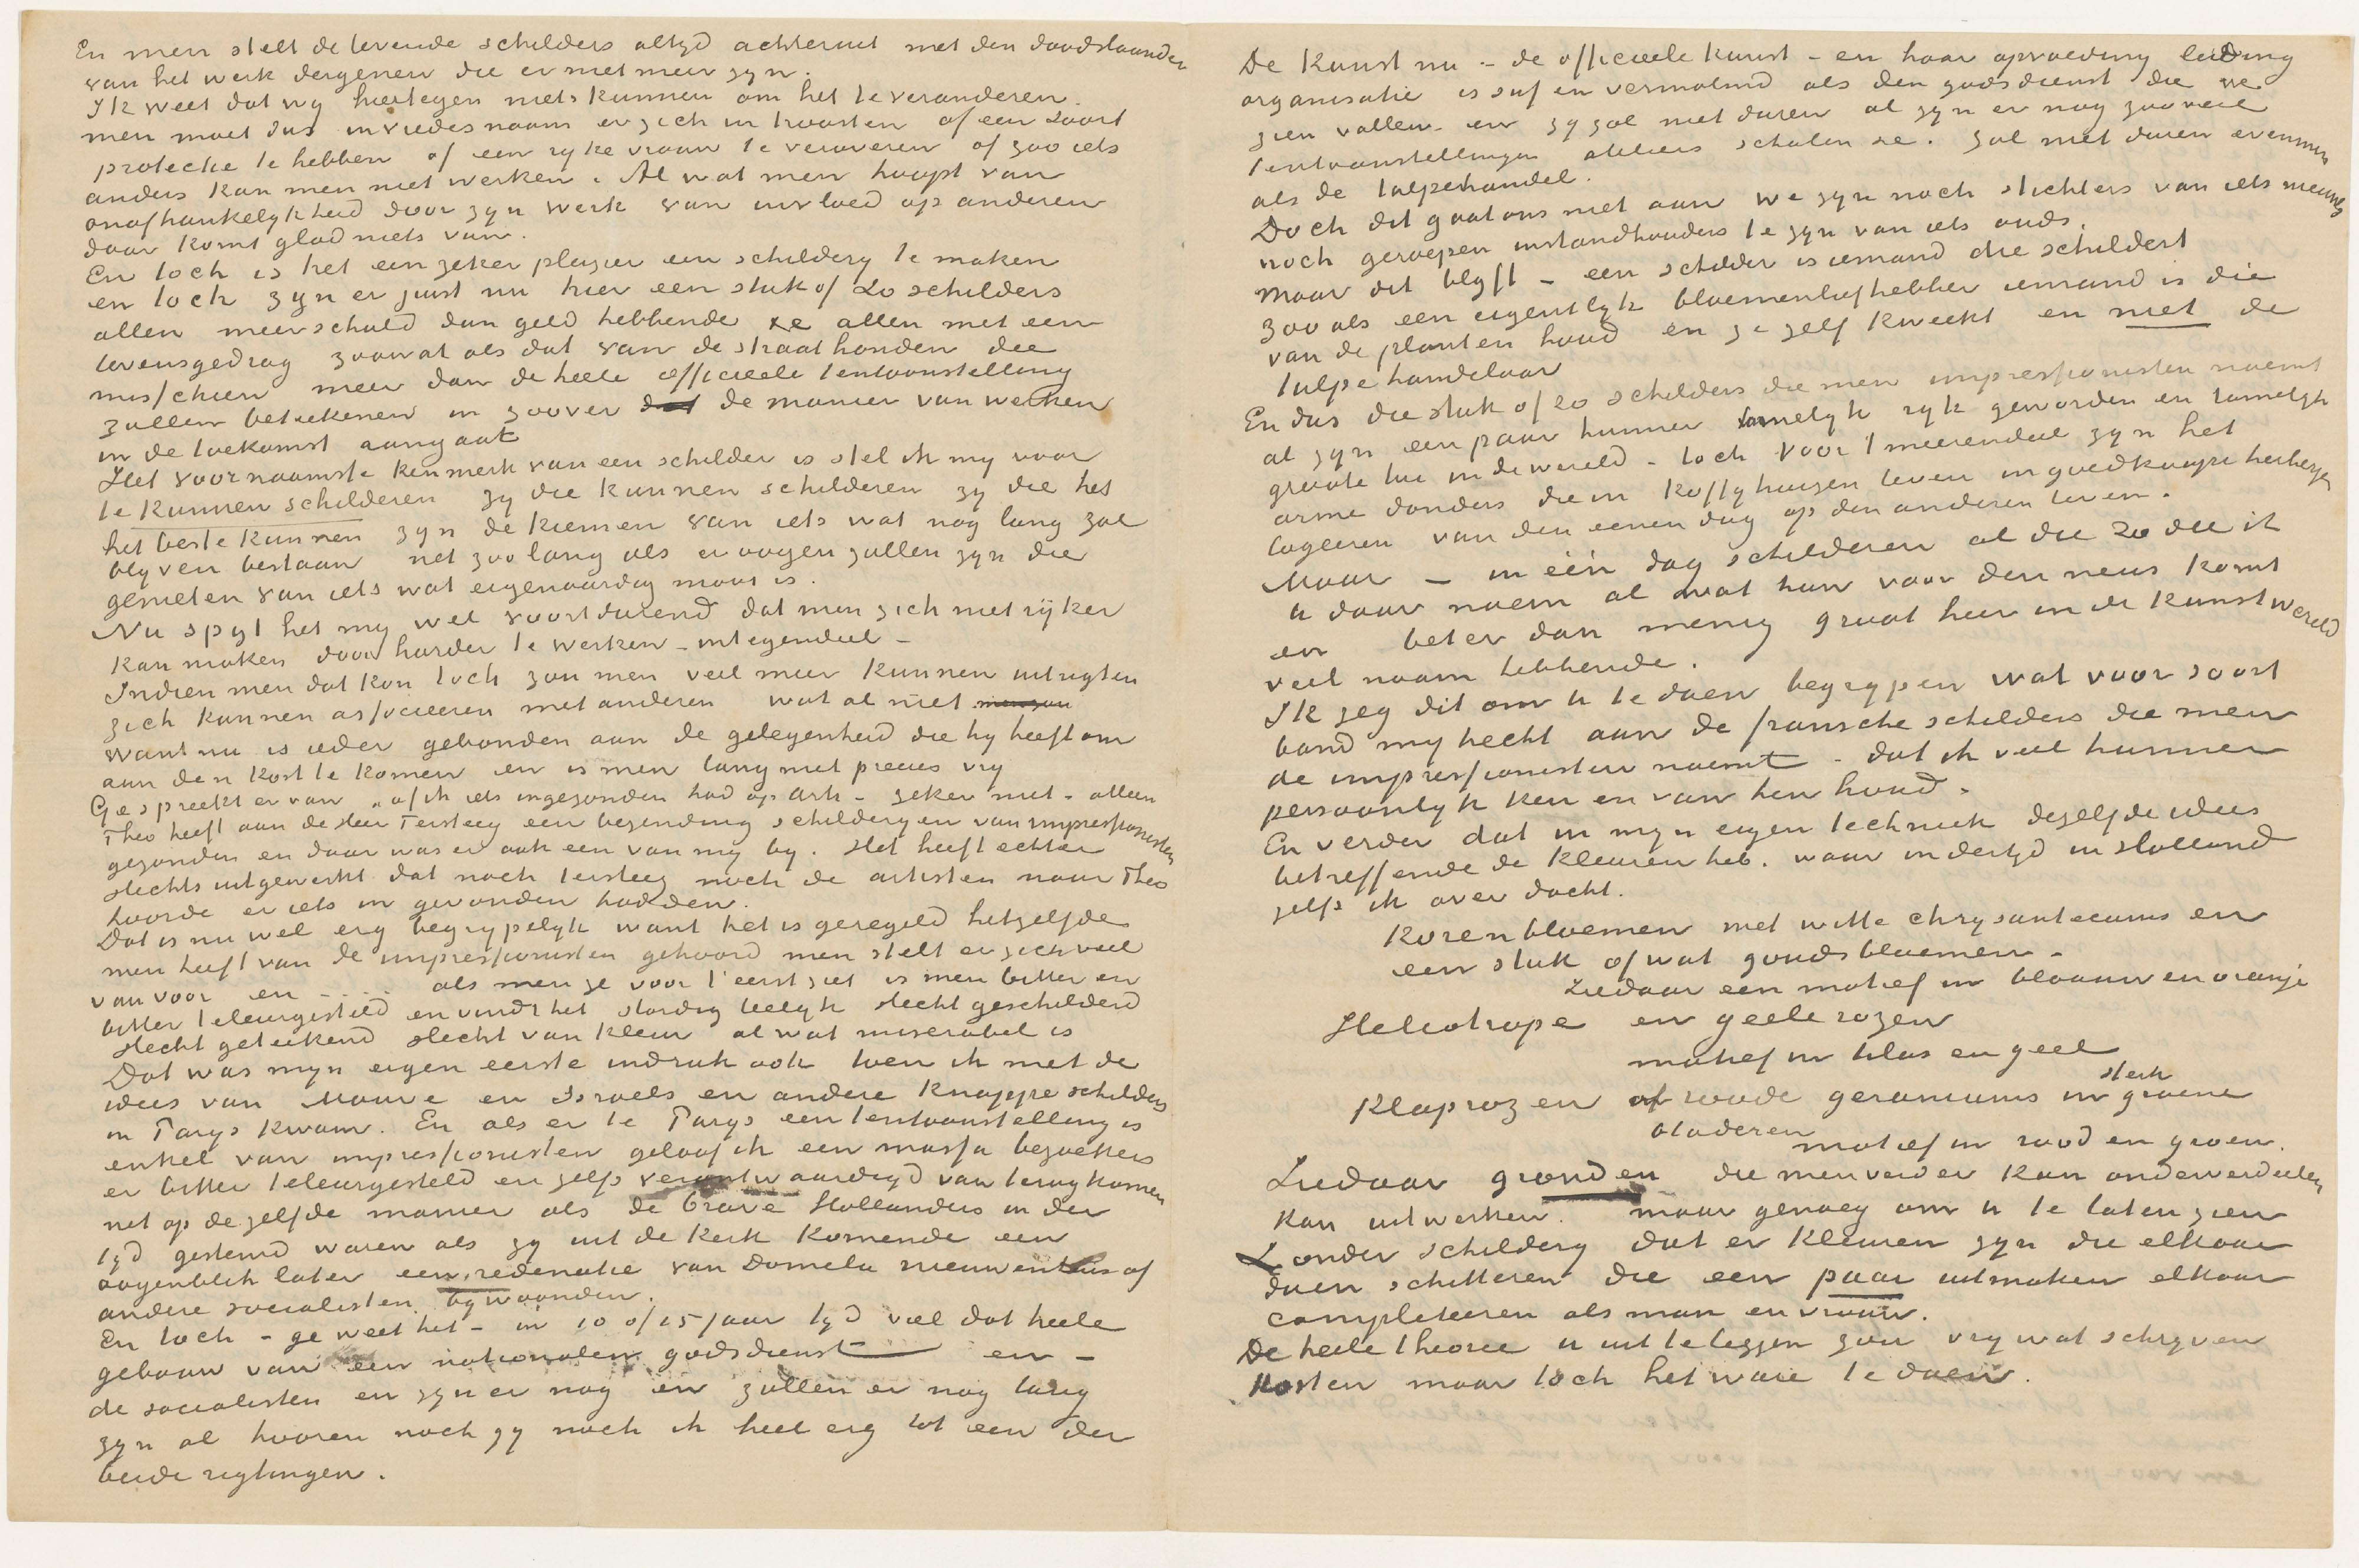 En men stelt de levende schilders altyd achteruit met den doodslaander
van het werk dergenen die er niet meer zyn.
Ik weet dat wy hiertegen niets kunnen om het te veranderen.
men moet dus in vredesnaam er zich in troosten of een soort
protectie te hebben of een ryke vrouw te veroveren of zoo iets
anders kan men niet werken. Al wat men hoopt van
onafhankelykheid door zyn werk van invloed op anderen
daar komt glad niets van.
En toch is het een zeker plezier een schildery te maken
en toch zyn er juist nu hier een stuk of 20 schilders
allen meer schuld dan geld hebbende xe allen met een
levensgedrag zoowat als dat van de straathonden die
misschien meer dan de heele officieele tentoonstelling
zullen beteekenen in zoover de manier van werken
in de toekomst aangaat
Het voornaamste kenmerk van een schilder is stel ik my voor
te kunnen schilderen zy die kunnen schilderen zy die het
het beste kunnen zyn de kiemen van iets wat nog lang zal
blyven bestaan net zoo lang als er oogen zullen zyn die
genieten van iets wat eigenaardig mooi is.
Nu spyt het my wel voortdurend dat men zich niet ryker
kan maken door harder te werken – integendeel –
Indien men dat kon toch zou men veel meer kunnen uitrigten
zich kunnen associeeren met anderen wat al niet
want nu is ieder gebonden aan de gelegenheid die hy heeft om
aan den kost te komen en is men lang niet precies vry
Ge spreekt er van „of ik iets ingezonden had op Arti – zeker niet – alleen
Theo heeft aan de Heer Tersteeg een bezending schilderyen van impressionisten
gezonden en daar was er ook een van my by. Het heeft echter
slechts uitgewerkt dat noch Tersteeg noch de artisten naar Theo
hoorde er iets in gevonden hadden.
Dat is nu wel erg begrypelyk want het is geregeld hetzelfde
men heeft van de impressionisten gehoord men stelt er zich veel
van voor en – . . . als men ze voor 't eerst ziet is men bitter en
bitter teleurgesteld en vindt het slordig leelyk slecht geschilderd
slecht geteekend slecht van kleur al wat miserabel is
Dat was myn eigen eerste indruk ook toen ik met de
idees van Mauve en Israels en andere knappe schilders
in Parys kwam. En als er te Parys een tentoonstelling is
enkel van impressionisten geloof ik een massa bezoekers
er bitter teleurgesteld en zelfs verontwaardigd van terug komen
net op dezelfde manier als de brave Hollanders in der
tyd gestemd waren als zy uit de kerk komende een
oogenblik later een redenatie van Domela Nieuwenhuis of
andere socialisten bywoonden.
En toch – ge weet het – in 10 of 15 jaar tyd viel dat heele
gebouw van een nationalen godsdienst en –
de socialisten en zyn er nog en zullen er nog lang
zyn al hooren noch gy noch ik heel erg tot een der
beide rigtingen.
De kunst nu – de officieele kunst – en haar opvoeding leiding
organisatie is suf en vermolmd als den godsdienst die we
zien vallen – en zy zal niet duren al zyn er nog zooveel
tentoonstellingen ateliers scholen &c. Zal niet duren evenmin
als de tulpehandel.
Doch dit gaat ons niet aan we zyn noch stichters van iets nieuws
noch geroepen instandhouders te zyn van iets ouds.
Maar dit blyft – een schilder is iemand die schildert
zooals een eigentlyk bloemenliefhebber iemand is die
van de planten houd en ze zelf kweekt en niet de
tulpehandelaar
En dus die stuk of 20 schilders die men impressionisten noemt
al zyn een paar hunner tamelyk ryk geworden en tamelyk
groote lui in de wereld – toch voor 't meerendeel zyn het
arme donders die in koffyhuizen leven in goedkoope herbergen
logeeren van den eenen dag op den anderen leven.
Maar – in één dag schilderen al die 20 die ik
u daar noem al wat hun voor den neus komt
en beter dan menig groot heer in de kunstwereld
veel naam hebbende.
Ik zeg dit om u te doen begrypen wat voor soort
band my hecht aan de fransche schilders die men
de impressionisten noemt – dat ik veel hunner
persoonlyk ken en van hen houd.
En verder dat in myn eigen techniek dezelfde idees
betreffende de kleuren heb. waar indertyd in Holland
zelfs ik over dacht.
Korenbloemen met witte chrysantecums en
een stuk of wat goudsbloemen –
Ziedaar een motief in blaauw en oranje
Heliotrope en geele rozen
motief in lilas en geel
Klaprozen of roode geraniums in sterk groene
bladeren motief in rood en groen.
Ziedaar gronden die men verder kan onderverdeelen
kan uitwerken. maar genoeg om u te laten zien
zonder schildery dat er kleuren zyn die elkaar
doen schitteren die een paar uitmaken elkaar
completeeren als man en vrouw.
De heele theorie u uit te leggen zou vry wat schryven
kosten maar toch het ware te doen.